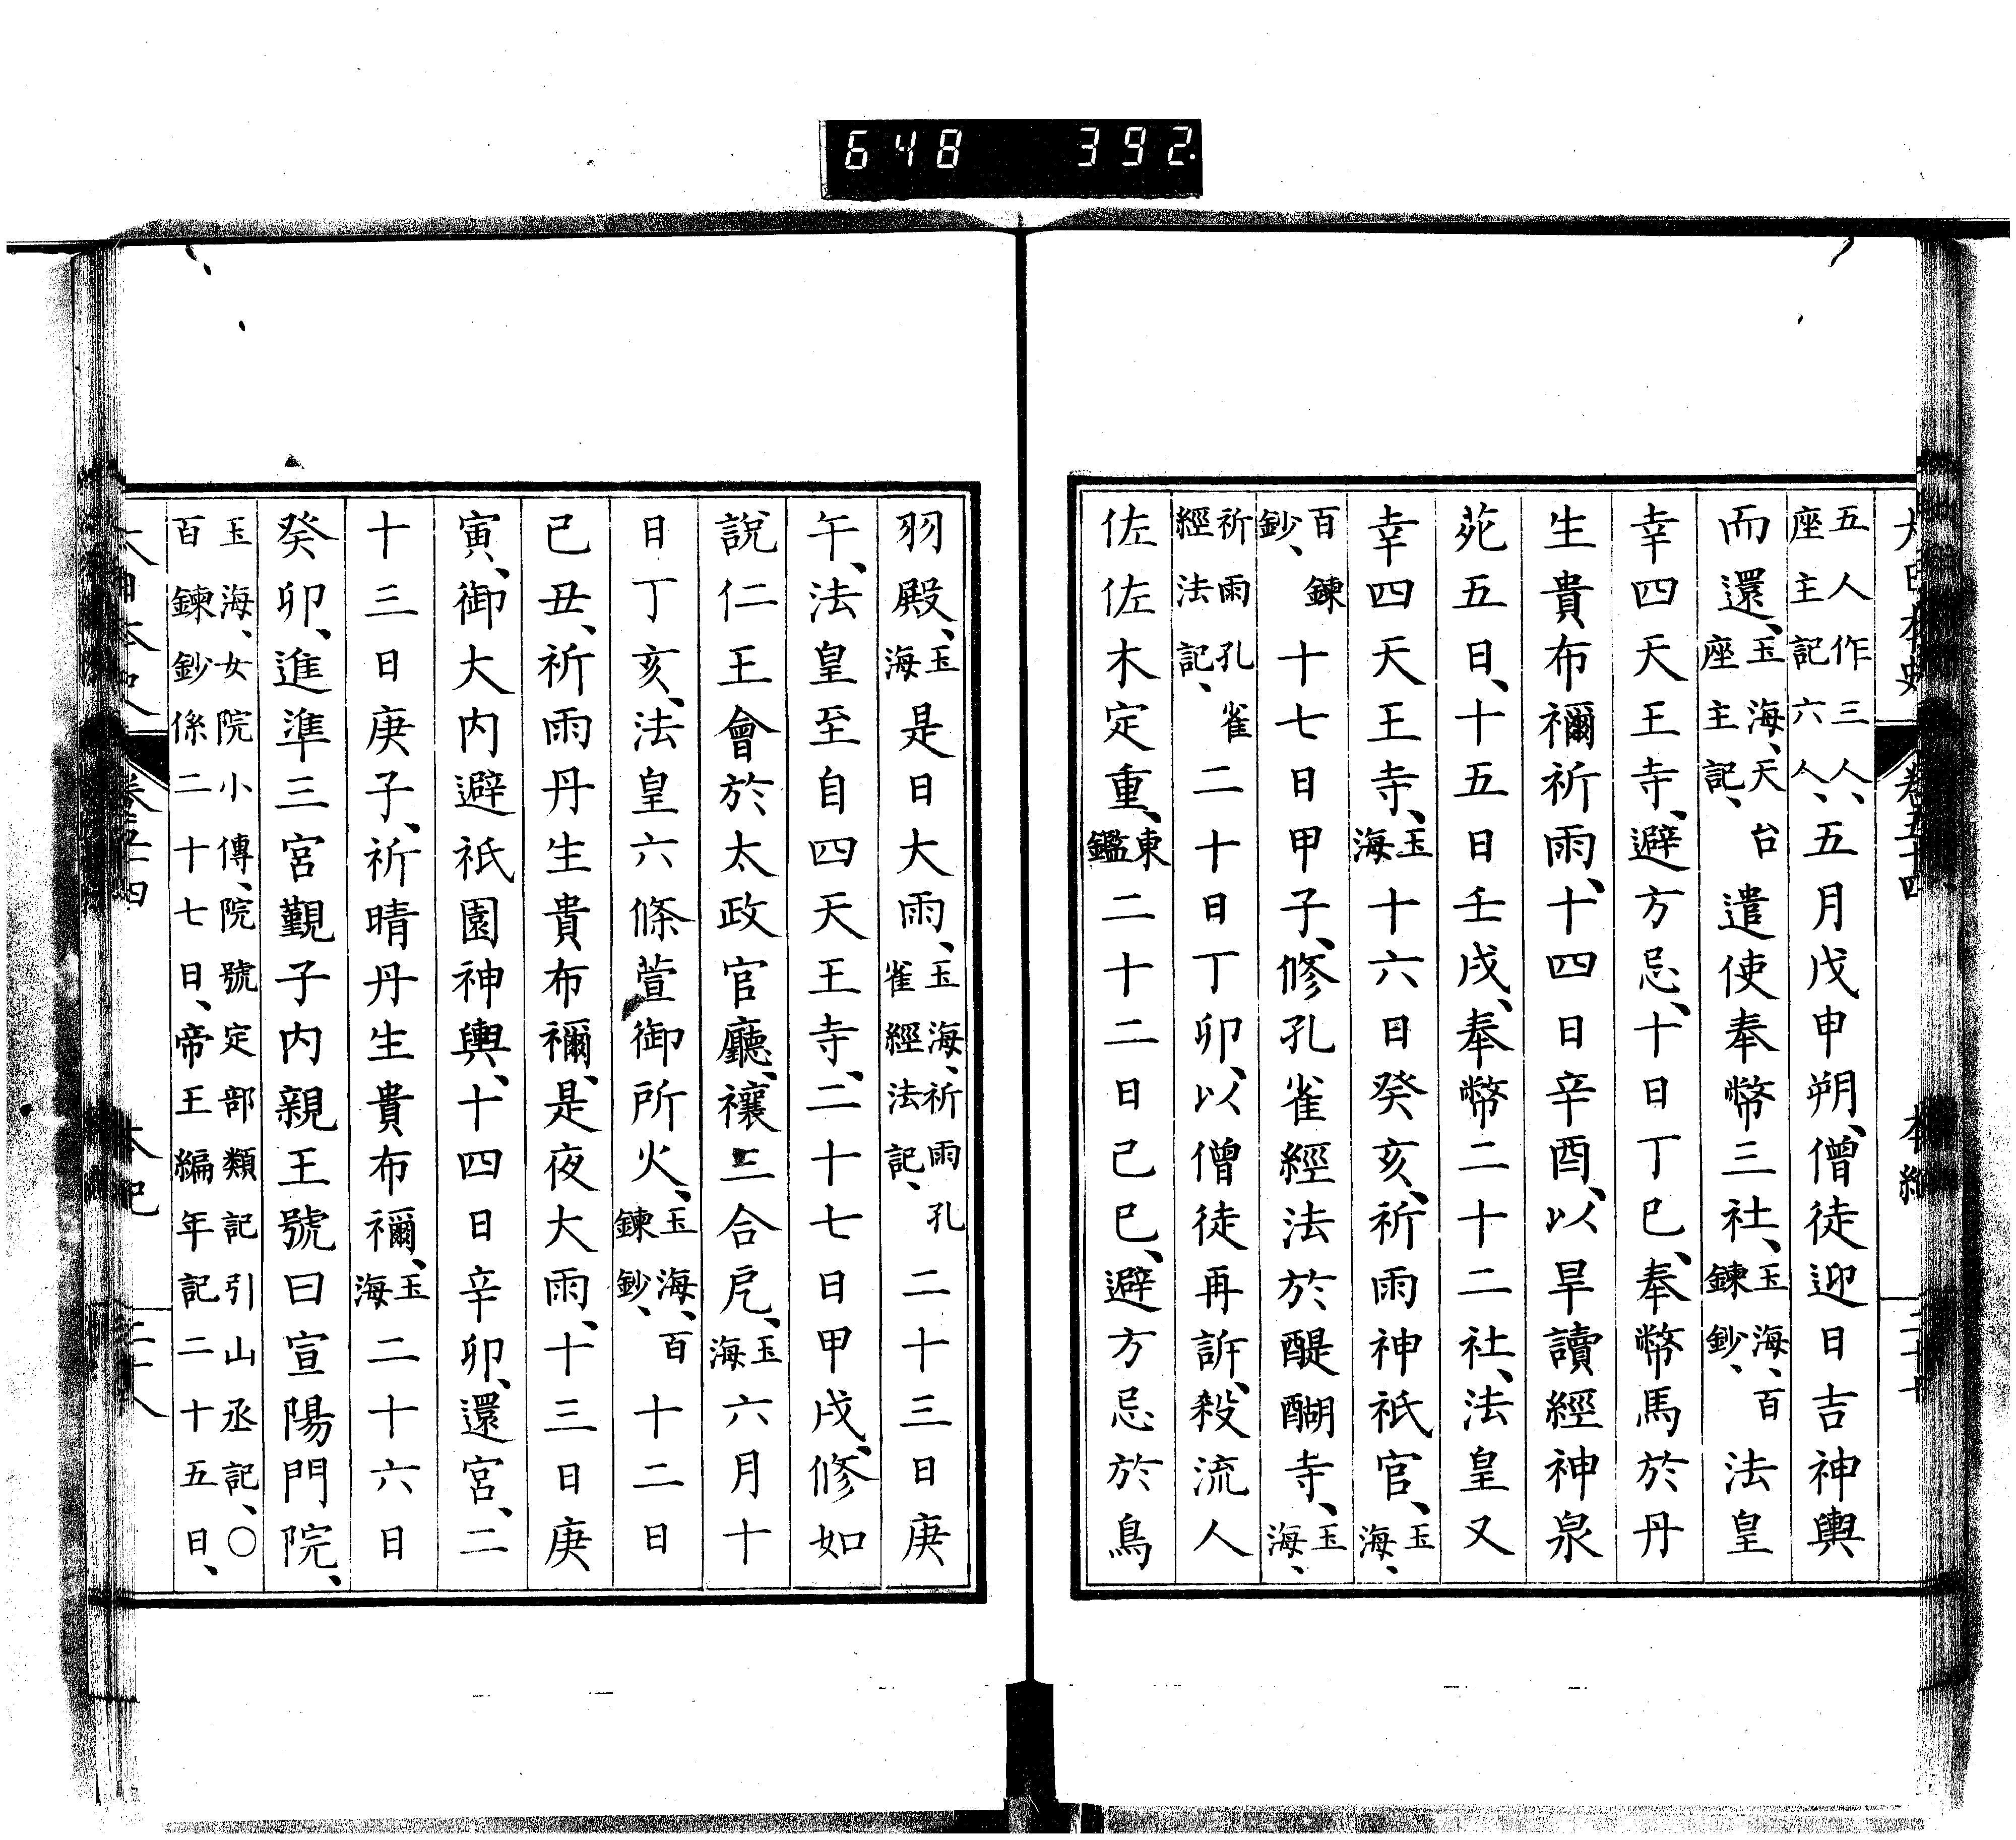 648 392.
五人作三人、座主記六人、五月戊申朔、僧徒迎日吉神輿
而還、玉海、天台座主記、遣使奉幣三社、玉海、百鍊鈔、法皇
幸四天王寺、避方忌、十日丁巳、奉幣馬於丹
生貴布禰祈雨、十四日辛酉、以旱讀經神泉
苑五日、十五日壬戌、奉幣二十二社、法皇又
幸四天王寺、玉海十六日癸亥、祈雨神祇官、玉海、
百鍊鈔、十七日甲子、修孔雀經法於醍醐寺、玉海、
祈雨孔雀經法記、二十日丁卯、以僧徒再訴、殺流人
佐佐木定重、東鑑二十二日己巳、避方忌於鳥
羽殿、玉海是日大雨、玉海、祈雨孔雀經法記、二十三日庚
午、法皇至自四天王寺、二十七日甲戌、修如
說仁王會於太政官廳、禳三合戹、玉海六月十
日丁亥、法皇六條萱御所火、玉海、百鍊鈔、十二日
己丑、祈雨丹生貴布禰、是夜大雨、十三日庚
寅、御大內避祇園神輿、十四日辛卯、還宮、二
十三日庚子、祈晴丹生貴布禰、玉海二十六日
癸卯、進準三宮覲子內親王號曰宣陽門院、
玉海、女院小傳、院號定部類記引山丞記、○百鍊鈔係二十七日、帝王編年記二十五日、